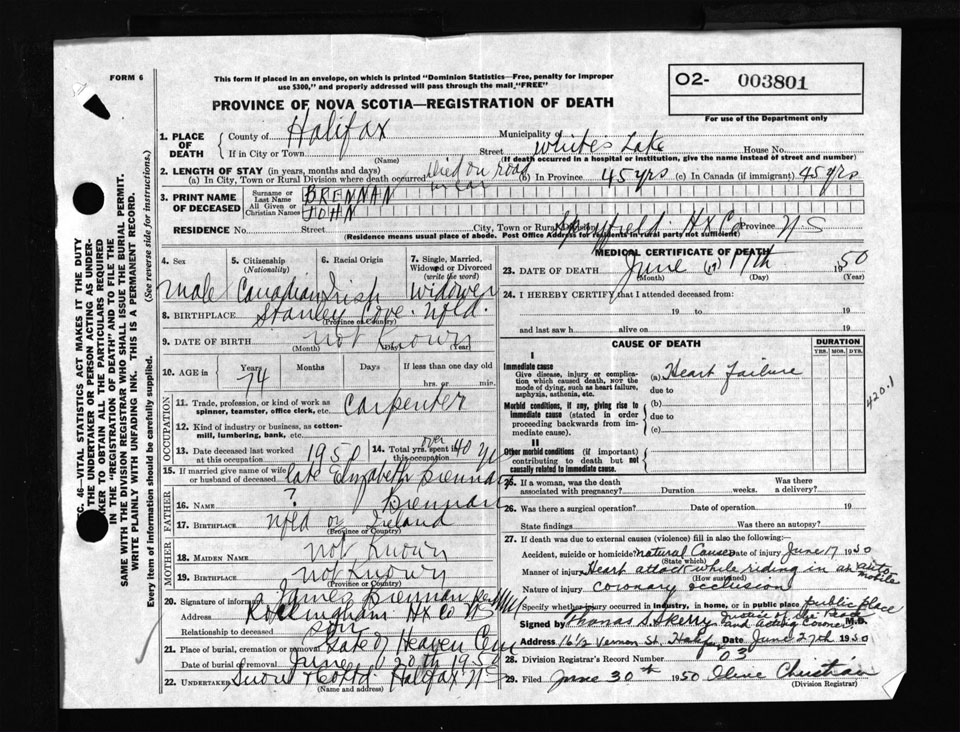 FORM 6
This form if placed in an envelope, on which is printed "Dominion Statistics—Free, penalty for improper
use $300," and properly addressed will pass through the mail, "FREE"
O2- 003801
For use of the Department only
PROVINCE OF NOVA SCOTIA—REGISTRATION OF DEATH
1. PLACE OF DEATH
County of Halifax Municipality of White's Lake
If in City or Town (Name) Street House No.
(If death occurred in a hospital or institution, give the name instead of street and number)
2. LENGTH OF STAY (in years, months and days)
(a) In City, Town or Rural Division where death occurred Died on road in car (b) In Province 45 yrs (c) In Canada (if immigrant) 45 yrs
3. PRINT NAME OF DECEASED
Surname or Last Name BRENNAN
All Given or Christian Names JOHN
RESIDENCE No. Street City, Town or Rural Spryfield Hx Co Province N S
(Residence means usual place of abode. Post Office Address for residents in rural parts not sufficient)
4. Sex 5. Citizenship (Nationality) 6. Racial Origin 7. Single, Married, Widowed or Divorced (write the word)
male Canadian Irish Widower
8. BIRTHPLACE Stanley Cove Nfld.
(Province or Country)
9. DATE OF BIRTH not known
(Month) (Day) (Year)
10. AGE in Years Months Days If less than one day old
74 hrs. or min.
OCCUPATION
11. Trade, profession or kind of work as spinner, teamster, office clerk, etc. Carpenter
12. Kind of industry or business, as cotton-mill, lumbering, bank, etc.
13. Date deceased last worked at this occupation 1950 14. Total yrs. spent in this occupation over 40 yr
15. If married give name of wife or husband of deceased late Elizabeth Brennan
FATHER
16. Name ? Brennan
17. Birthplace Nfld or Ireland
(Province or Country)
MOTHER
18. Maiden Name not Known
19. Birthplace not Known
(Province or Country)
20. Signature of informant James Brennan
Address Rockingham Hx Co NS
Relationship to deceased son
21. Place of burial, cremation or removal Gate of Heaven Cem
Date of burial or removal June 20th 1950
22. Undertaker Snow & Co Ltd Halifax N S
(Name and address)
MEDICAL CERTIFICATE OF DEATH
23. DATE OF DEATH June (17) 17th 1950
(Month) (Day) (Year)
24. I HEREBY CERTIFY that I attended deceased from:
19 to 19
and last saw h alive on 19
CAUSE OF DEATH DURATION
YRS. MOS. DYS.
I
Immediate cause
Give disease, injury or complication which caused death, NOT the mode of dying, such as heart failure, asphyxia, asthenia, etc.
(a) Heart Failure
due to
Morbid conditions, if any, giving rise to immediate cause (stated in order proceeding backwards from immediate cause).
(b)
due to
(c)
II
Other morbid conditions (if important) contributing to death but not causally related to immediate cause.
420.1
25. If a woman, was the death associated with pregnancy? Duration weeks. Was there a delivery?
26. Was there a surgical operation? Date of operation 19
State findings Was there an autopsy?
27. If death was due to external causes (violence) fill in also the following:
Accident, suicide or homicide? natural Causes Date of injury June 17 1950
(State which)
Manner of injury Heart attack while riding in an automobile
(How sustained)
Nature of injury coronary occlusion
Specify whether injury occurred in industry, in home, or in public place public place
Signed by Thomas S. Skerry Justice of the Peace and acting Coroner, M.D.
Address 16½ Vernon St. Halifax Date June 27th 1950
28. Division Registrar's Record Number 03
29. Filed June 30th 1950 Olive Christian
(Division Registrar)
SEC. 46—VITAL STATISTICS ACT MAKES IT THE DUTY
OF THE UNDERTAKER OR PERSON ACTING AS UNDERTAKER TO OBTAIN ALL THE PARTICULARS REQUIRED
IN THE "REGISTRATION OF DEATH" AND TO FILE THE
SAME WITH THE DIVISION REGISTRAR WHO SHALL ISSUE THE BURIAL PERMIT.
WRITE PLAINLY WITH UNFADING INK. THIS IS A PERMANENT RECORD.
Every item of information should be carefully supplied. (See reverse side for instructions.)